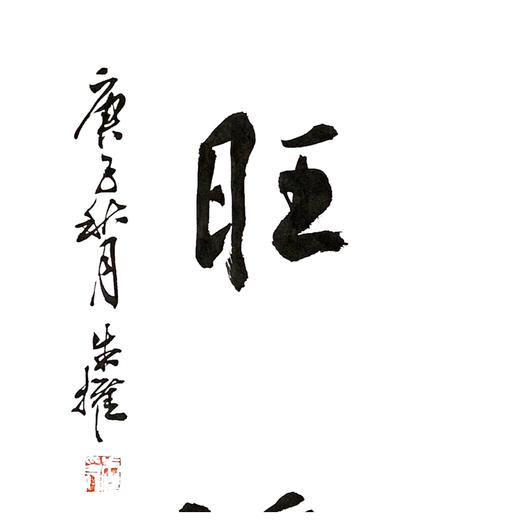 旺
庚子秋月
朱擢